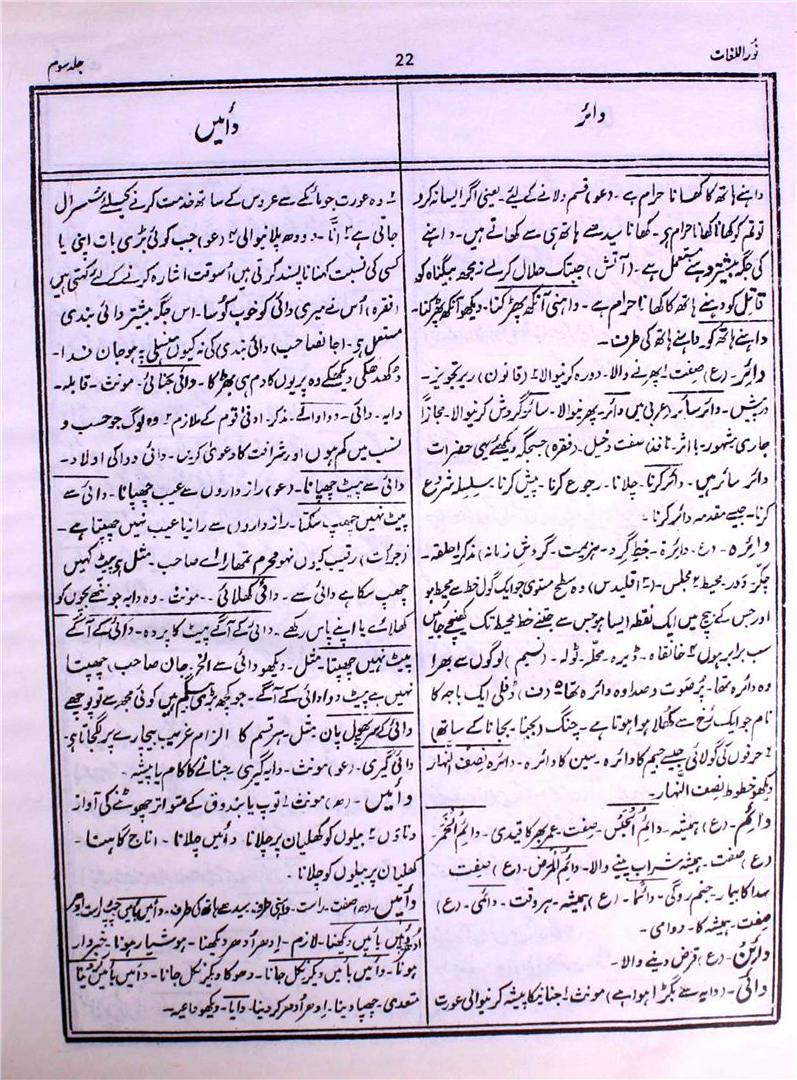 نُور اللغات
22
جلد سوم
دائر
دائیں
داہنے ہاتھ کا کھانا حرام ہے۔ (عو) قسم دلانے کے لیے۔ یعنی اگر ایسا نہ کرو
تو تم کو کھانا کھانا حرام ہو۔ کھانا سیدھے ہاتھ ہی سے کھاتے ہیں۔ داہنے
کی جگہ بیشتر دہنے مستعمل ہے۔ (آتش) جبتک حلال کرے نہ مجھ بیگناہ کو
قاتل کو دہنے ہاتھ کا کھانا حرام ہے۔ داہنی آنکھ پھڑکنا۔ دیکھو آنکھ پھڑکنا۔
داہنے ہاتھ کو۔ داہنے ہاتھ کی طرف۔
دائر۔ (ع) صفت۔ ۱ پھرنے والا۔ دورہ کرنیوالا ۲ (قانون) زیر تجویز۔
درپیش۔ دائر سائر (عربی میں دائر۔ پھرنیوالا۔ سائر گردش کرنیوالا۔ مجازاً
جاری مشہور۔ با اثر۔ نافذ) صفت دخیل۔ (فقرہ) جس جگہ دیکھئے یہی حضرات
دائر سائر ہیں۔ دائر کرنا۔ چلانا۔ رجوع کرنا۔ پیش کرنا۔ سلسلہ شروع
کرنا۔ جیسے مقدمہ دائر کرنا۔
دائرہ۔ (ع۔ دائرۃ۔ خط گرد۔ ہزیمت۔ گردش زمانہ) مذکر ۱ حلقہ۔
چکر۔ دَور۔ محیط ۲ مجلس۔ (۳ اقلیدس) وہ سطح مستوی جو ایک گول خط سے محیط ہو
اور جس کے بیچ میں ایک نقطہ ایسا ہو جس سے جتنے خط محیط تک کھینچے جائیں
سب برابر ہوں ۴ خانقاہ۔ ڈیرہ۔ محلّہ۔ ٹولہ۔ (نسیم) لوگوں سے بھرا
وہ دائرہ تھا۔ پُر صوت و صدا وہ دائرہ تھا ۵ (مث) ڈفلی ایک باجہ کا
نام جو ایک رُخ سے کھُلا ہوا ہوتا ہے۔ چنگ (بجنا۔ بجانا کے ساتھ)
۶ حرفوں کی گولائی جیسے جیم کا دائرہ۔ سین کا دائرہ۔ دائرہ نصف النّہار
دیکھو خطوط نصف النّہار۔
دائم۔ (ع) ہمیشہ۔ دائمُ الحبْس۔ صفت۔ عمر بھر کا قیدی۔ دائم الخَمْر
(ع) صفت۔ ہمیشہ شراب پینے والا۔ دائم المرض۔ (ع) صفت
سدا کا بیمار۔ جنم روگی۔ دائماً۔ (ع) ہمیشہ۔ ہروقت۔ دائمی۔ (ع)
صفت۔ ہمیشہ کا۔ دوامی۔
دائِن۔ (ع) قرض دینے والا۔
دائی۔ (دایہ سے بگڑا ہوا ہے) مونث ۱ جنانیکا پیشہ کرنیوالی عورت
۲ وہ عورت جو مائکے سے عروس کے ساتھ خدمت کرنے کیلئے سُسرال
جاتی ہے ۳ اَنّا۔ دودھ پلانیوالی ۴ (عو) جب کوئی بڑی بات اپنی یا
کسی کی نسبت کہنا نا پسند کرتی ہیں اُسوقت اشارہ کرنے کے لیے کہتی ہیں
(فقرہ) اُس نے میری دائی کو خوب کُوسا۔ اس جگہ بیشتر دائی بندی
مستعمل ہو۔ (جانصاحب) دائی بندی کی نہ کیوں ہنسلی پہ ہو جان فدا۔
دُگدھگی دیکھکے وہ پریوں کا دم ہی پھڑکا۔ دائی جنائی۔ مونث۔ قابلہ۔
دایہ۔ دائی۔ دوا والے۔ مذکر۔ ادنیٰ قوم کے ملازم ۲ وہ لوگ جو حسب و
نسب میں کم ہوں اور شرافت کا دعویٰ کریں۔ دائی دوا کی اولاد۔
دائی سے پیٹ چھپانا۔ (عو) راز داروں سے عیب چھپانا۔ دائی سے
پیٹ نہیں چھپ سکتا۔ راز داروں سے راز یا عیب نہیں چھپتا ہے۔
(جرأت) رقیب کیوں نہو محرم تمھارا اے صاحب۔ مثل ہے پیٹ کہیں
چھپ سکا ہے دائی سے۔ دائی کھلائی۔ مونث۔ وہ دایہ جو ننھے بچوں کو
کھلائے یا اپنے پاس رکھے۔ دائی کے آگے پیٹ کا پردہ۔ دائی کے آگے
پیٹ نہیں چھپتا۔ مثل۔ دیکھو دائی سے الخ۔ (جان صاحب) چھپتا
نہیں ہے پیٹ دوا دائی کے آگے۔ جو کچھ بڑی بیگم ہیں کوئی مجھ سے تو پوچھے
دائی کے سر پھول پان۔ مثل۔ ہر قسم کا الزام غریب بیچارے پر لگتا ہو۔
دائی گیری۔ (عو) مونث۔ دایہ گیری۔ جنانے کا کام یا پیشہ۔
دائیں۔ (ھ) مونث ۱ توپ یا بندوق کے متواتر چھوٹنے کی آواز
دناؤں ۲ بیلوں کو کھلیان پر چلانا۔ دائیں چلانا۔ اناج گاہنا۔
کھلیان پر بیلوں کو چلانا۔
دائیں۔ (ھ) صفت۔ راست۔ داہنی طرف۔ سیدھے ہاتھ کی طرف۔ دائیں بائیں چپ راست ادھر
اُدھر۔ دائیں بائیں دیکھنا۔ لازم۔ اِدھر اُدھر دیکھنا۔ ہوشیار ہونا۔ خبردار
ہونا۔ دائیں بائیں دیکر نکل جانا۔ دھوکا دیکر نکل جانا۔ دائیں بائیں کر دینا
متعدی۔ چھپا دینا۔ اِدھر اُدھر کر دینا۔ دایا۔ دیکھو داعیہ۔